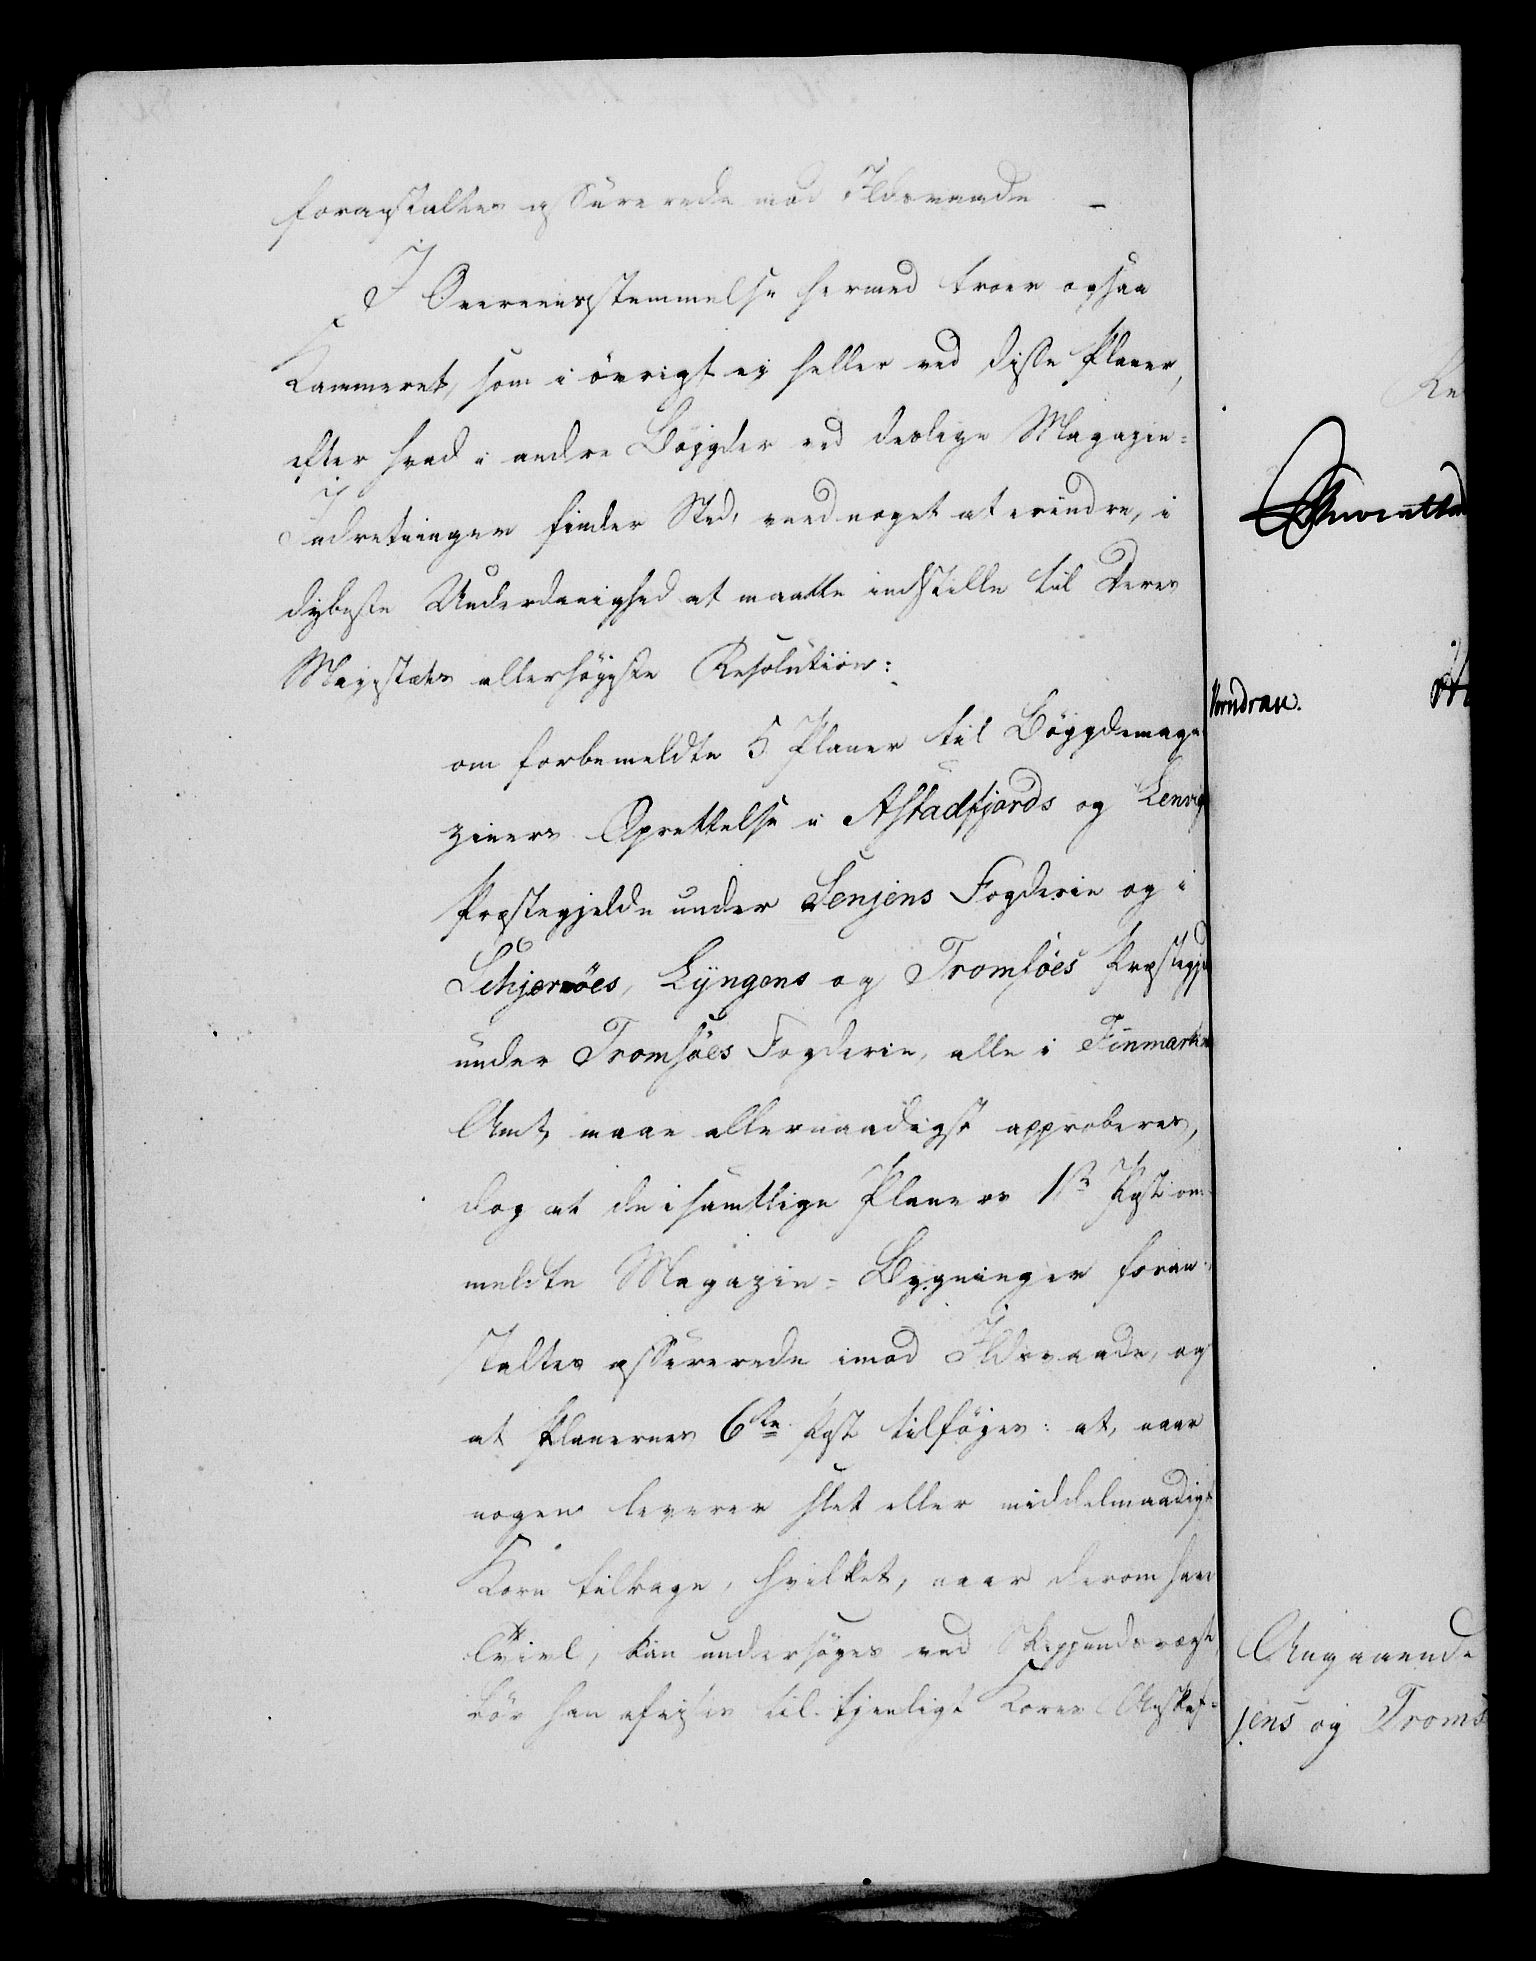 foranstaltes assurerede mod Ildsvaade –
I Overeensstemmelse hermed troer ogsaa
Kammeret, som i övrigt ej heller ved disse Planer,
efter hvad i andre Böygder ved deslige Magazin-
Indretninger finder Sted, veed noget at erindre, i
dybeste Underdanighed at maatte indstille til Deres
Majestæts allerhöyeste Resolution:
om forbemeldte 5 Planer til Böygdemaga-
ziners Oprettelse i Astadfjords og Lenvigs
Præstegjelde under Senjens Fogderie og i
Schjervöes, Lyngens og Tromsöes Præstegje
under Tromsöes Fogderie, alle i Finmarkens
Amt, maae allernaadigst approberes,
dog at de i samtlige Planers 1ste Post om-
meldte Magazin-Bygninger foran-
staltes assurerede imod Ildsvaade, og
at Planernes 6te Post tilföjes: at, naar
nogen leverer slet eller middelmaadigt
Korn tilbage, hvilket, naar derom haves
Tvivl, kan undersöges ved Skippundsvægt,
bör han afvises til tjenligt Korns Anskaf-
Verndran.
Angaaende
jens og Troms